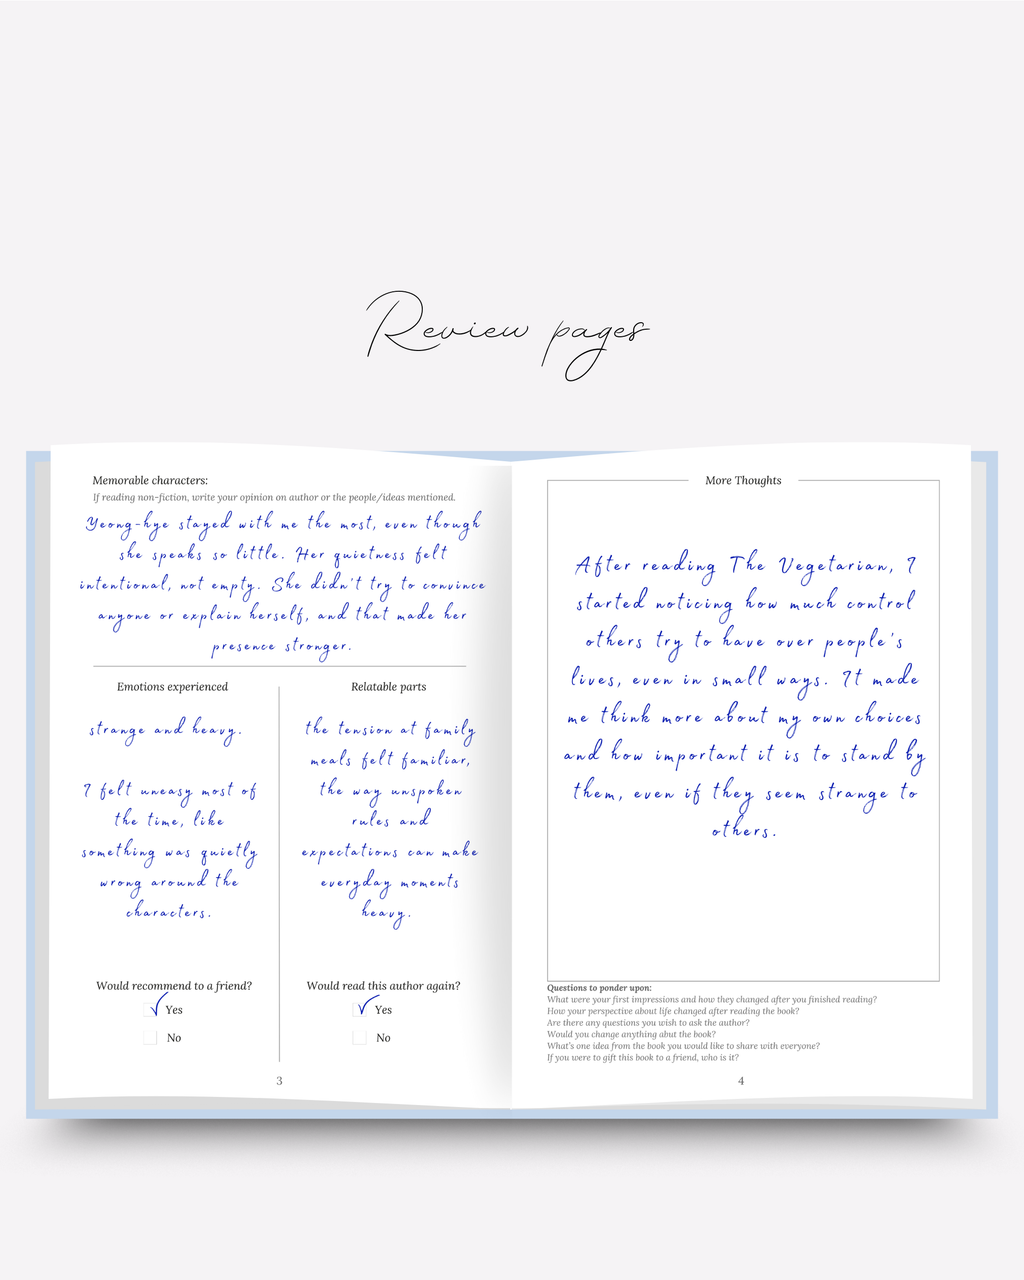 Review pages
Memorable characters:
If reading non-fiction, write your opinion on author or the people/ideas mentioned.
Yeong-hye stayed with me the most, even though
she speaks so little. Her quietness felt
intentional, not empty. She didn't try to convince
anyone or explain herself, and that made her
presence stronger.
Emotions experienced
strange and heavy.
I felt uneasy most of
the time, like
something was quietly
wrong around the
characters.
Relatable parts
the tension at family
meals felt familiar,
the way unspoken
rules and
expectations can make
everyday moments
heavy.
Would recommend to a friend?
Yes
No
Would read this author again?
Yes
No
3
More Thoughts
After reading The Vegetarian, I
started noticing how much control
others try to have over people's
lives, even in small ways. It made
me think more about my own choices
and how important it is to stand by
them, even if they seem strange to
others.
Questions to ponder upon:
What were your first impressions and how they changed after you finished reading?
How your perspective about life changed after reading the book?
Are there any questions you wish to ask the author?
Would you change anything abut the book?
What's one idea from the book you would like to share with everyone?
If you were to gift this book to a friend, who is it?
4